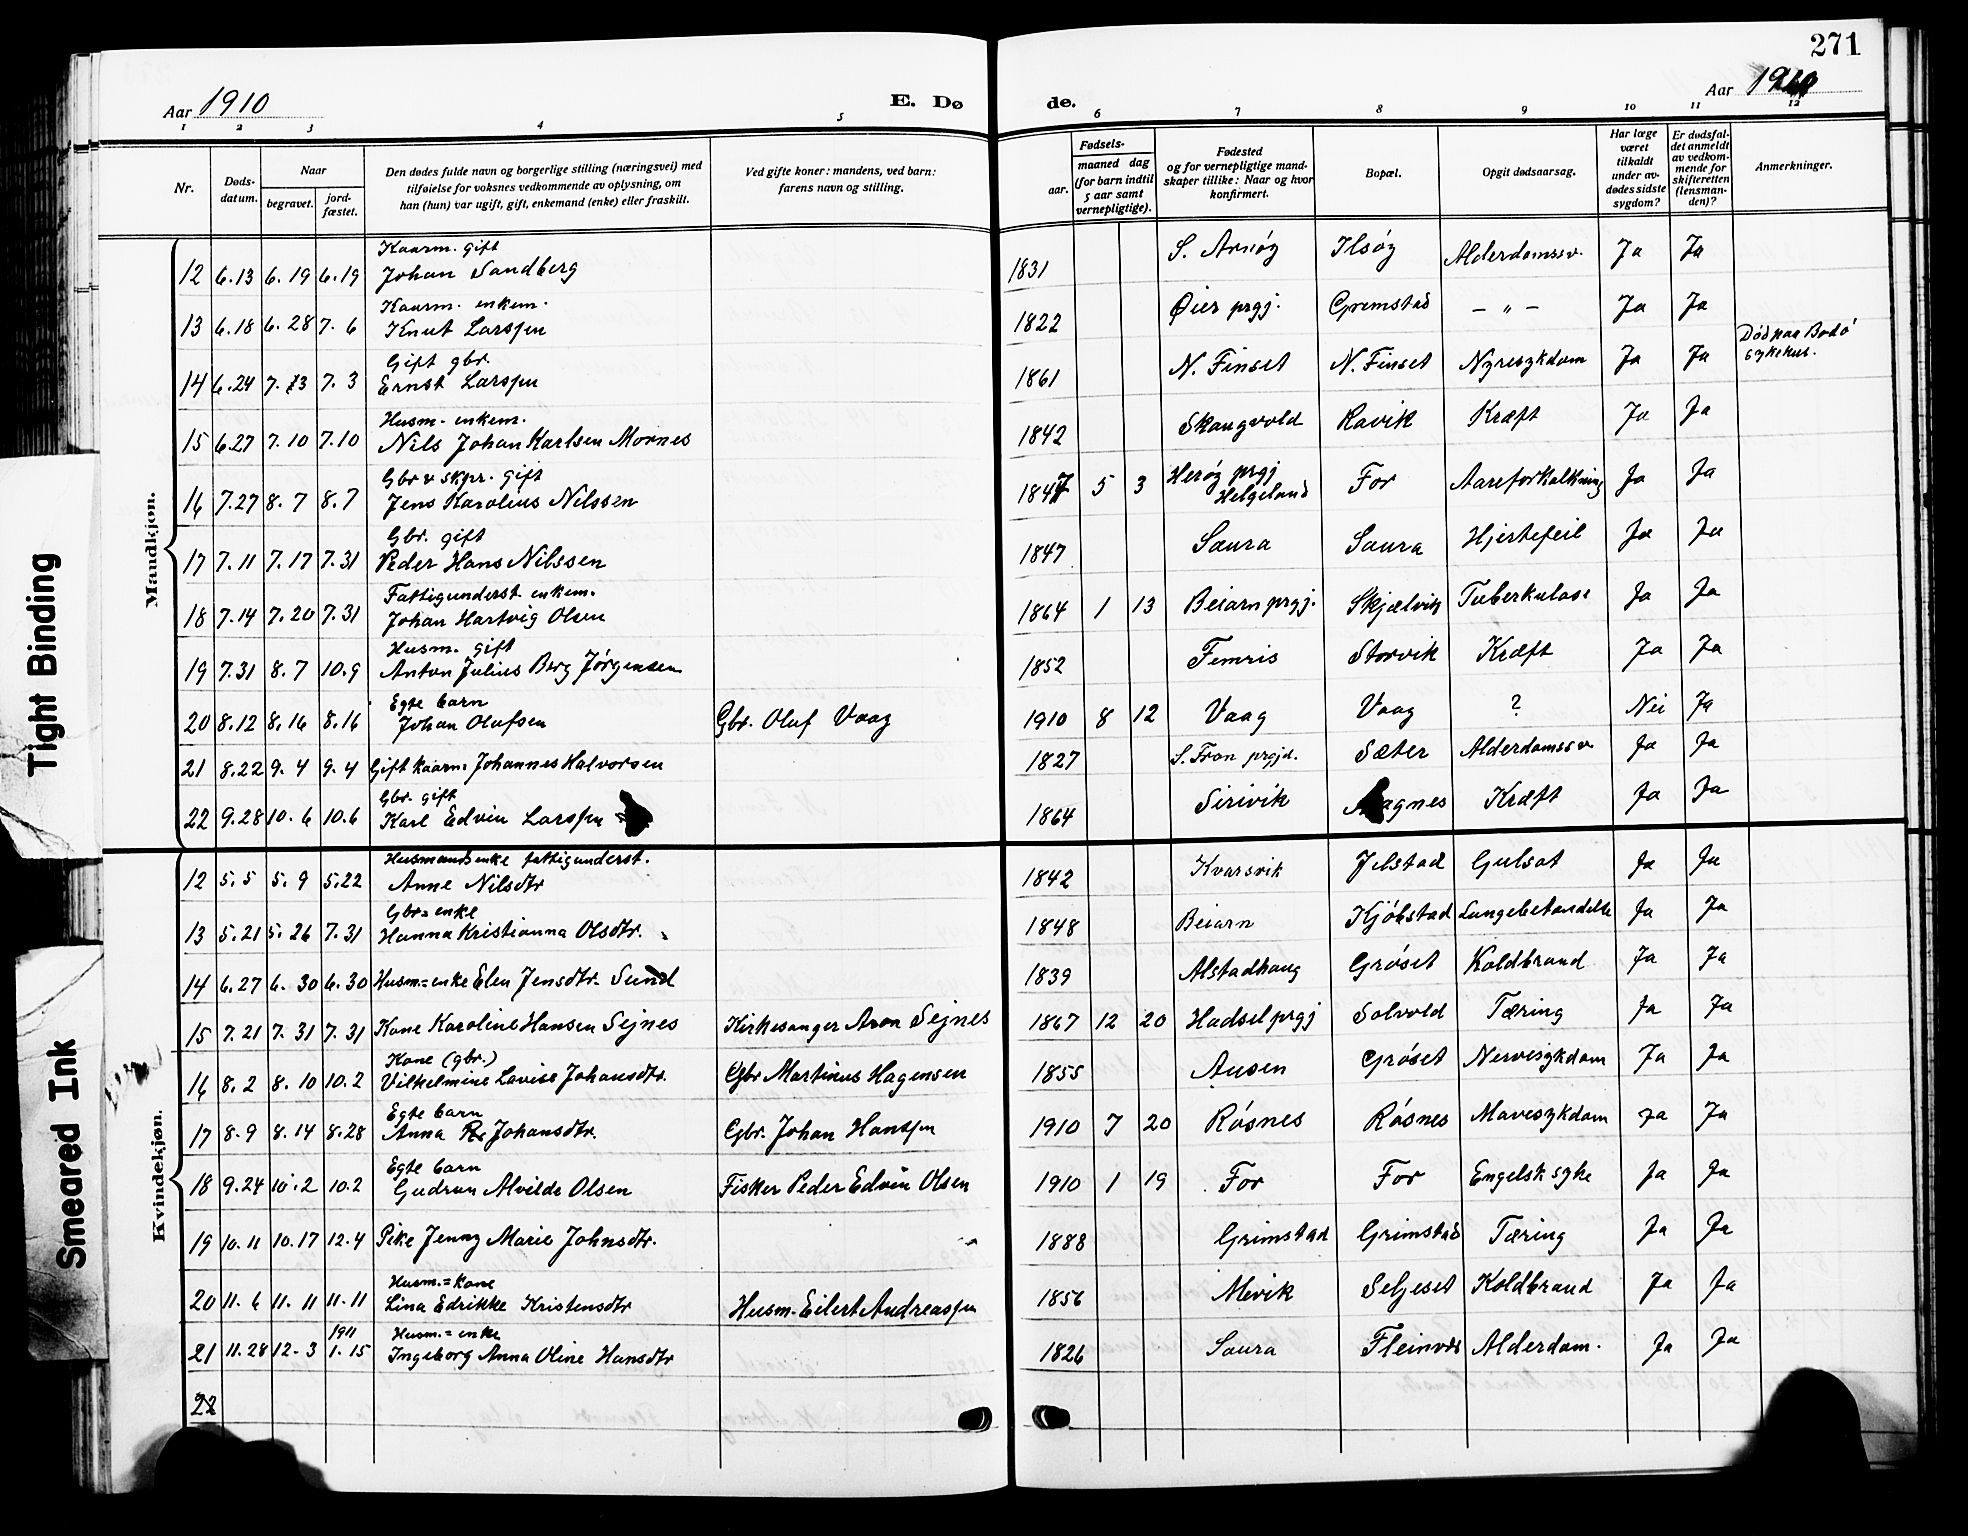 271
Aar 1910
E. Dø
de.
Aar 1910
1 2 3 4 5 6 7 8 9 10 11 12
Nr.
Døds-
datum.
Naar
begravet.
jord-
fæstet.
Den dødes fulde navn og borgerlige stilling (næringsvei) med
tilføielse for voksnes vedkommende av oplysning, om
han (hun) var ugift, gift, enkemand (enke) eller fraskilt.
Ved gifte koner: mandens, ved barn:
farens navn og stilling.
Fødsels-
aar.
maaned dag
(for barn indtil
5 aar samt
vernepligtige).
Fødested
og for vernepligtige mand-
skaper tillike: Naar og hvor
konfirmert.
Bopæl.
Opgit dødsaarsag.
Har læge
været
tilkaldt
under av-
dødes sidste
sygdom?
Er dødsfal-
det anmeldt
av vedkom-
mende for
skifteretten
(lensman-
den)?
Anmerkninger.
Mandkjøn.
Kaarm. gift
12 6.13 6.19 6.19 Johan Sandberg 1831 S. Arnøy Ilsøy Alderdomssv. Ja Ja
Kaarm. enkem.
13 6.18 6.28 7.6 Knut Larssen 1822 Øier prgj. Gremstad — „ — Ja Ja
Gift gbr.
14 6.24 7.3 7.3 Ernst Larssen 1861 N. Finset N. Finset Nyresykdom Ja Ja Død paa Bodø
sykehus.
Husm. enkem.
15 6.27 7.10 7.10 Nils Johan Karlsen Mornes 1842 Skaugvold Ravik Kræft Ja Ja
Gbr & skpr. gift
16 7.27 8.7 8.7 Jens Karolius Nilssen 1847 5 3 Herøy prgj Helgeland For Aareforkalkning Ja Ja
Gbr. gift
17 7.11 7.17 7.31 Peder Hans Nilssen 1847 Saura Saura Hjertefeil Ja Ja
Fattigunderst enkem.
18 7.14 7.20 7.31 Johan Hartvig Olsen 1864 1 13 Beiarn prgj. Skjælvik Tuberkulose Ja Ja
Husm. gift
19 7.31 8.7 10.9 Anton Julius Berg Jørgensen 1852 Femris Storvik Kræft Ja Ja
Egte barn
20 8.12 8.16 8.16 Johan Olufsen Gbr. Oluf Vaag 1910 8 12 Vaag Vaag ? Nei Ja
21 8.22 9.4 9.4 Gift kaarm. Johannes Halvorsen 1827 S. Fron prgjd. Sæter Alderdomssv. Ja Ja
Gbr. gift
22 9.28 10.6 10.6 Karl Edvin Larssen 1864 Sirivik Kræft Ja Ja
Kvindekjøn.
Husmands enke fattigunderst.
12 5.5 5.9 5.22 Anne Nilsdtr 1842 Kvarsvik Jelstad Gulsot Ja Ja
Gbr = enke
13 5.21 5.26 7.31 Hanna Kristianna Olsdtr. 1848 Beiarn Kjøkstad Lungebetændelse Ja Ja
14 6.27 6.30 6.30 Husm. = enke Elen Jensdtr. Sund 1839 Alstadhaug Grøset Koldbrand Ja Ja
15 7.21 7.31 7.31 Kone Karoline Hansen Sejnes Kirkesanger Aron Sejnes 1867 12 20 Hadsel prgj Solvold Tæring Ja Ja
Kone (gbr.)
16 8.2 8.10 10.2 Vilhelmine Lovise Johansdtr. Gbr Martinus Hagensen 1855 Ausen Grøset Nervesykdom Ja Ja
Egte barn
17 8.9 8.14 8.28 Anna Johansdtr. Gbr. Johan Hanssen 1910 7 20 Røsnes Røsnes Mavesykdom Ja Ja
Egte barn
18 9.24 10.2 10.2 Gudrun Alvilde Olsen Fisker Peder Edvin Olsen 1910 1 19 For For Engelsk syke Ja Ja
19 10.11 10.17 12.4 Pike Jenny Marie Johnsdtr. 1888 Grimstad Grimstad Tæring Ja Ja
Husm. = kone
20 11.6 11.11 11.11 Lina Edrikke Kristensdtr Husm. Eilert Andreassen 1856 Mevik Seljeset Koldbrand Ja Ja
1911 Husm. = enke
21 11.28 12.3 1.15 Ingeborg Anna Oline Hansdtr 1826 Saura Fleinvær Alderdom. Ja Ja
22
Tight Binding
Smeared Ink